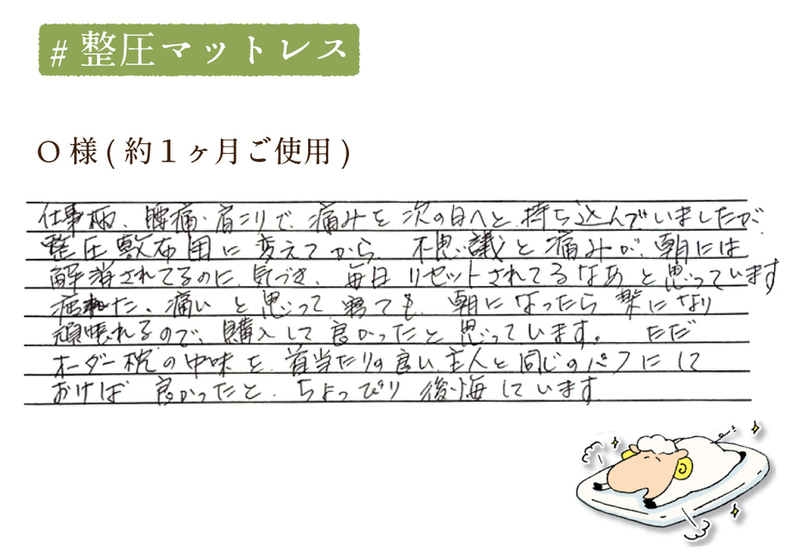 #整圧マットレス
O様(約1ヶ月ご使用)
仕事柄、腰痛・肩こりで、痛みを次の日へと持ち込んでいましたが
整圧敷布団に変えてから、不思議と痛みが、朝には
解消されてるのに、気づき、毎日リセットされてるなあと思っています
疲れた、痛いと思って寝ても、朝になったら楽になり
頑張れるので、購入して良かったと思っています。ただ
オーダー枕の中味を、首当たりの良い主人と同じのパフにして
おけば良かったと、ちょっぴり後悔しています